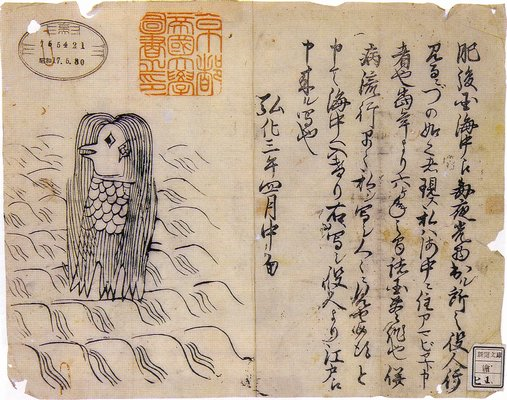 肥後国海中え毎夜光物出ル所之役人行
見るニづの如之者現ス私ハ海中ニ住アマビヱト申
者也当年より六ヶ年之間諸国豊作也併
病流行早々私シ写シ人々ニ見せ候得と
申て海中へ入けり右写シ役人より江戸え
申来ル写也
弘化三年四月中旬
京都
帝國大學
圖書之印
165421
昭和17.6.30
新聞文庫